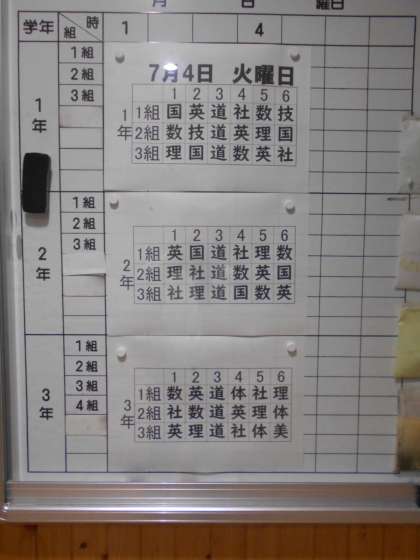 月 日 曜日
学年 時 組 1 4
1年
1組
2組
3組
7月4日 火曜日
1 2 3 4 5 6
1年
1組 国 英 道 社 数 技
2組 数 技 道 英 理 国
3組 理 国 道 数 英 社
2年
1組
2組
3組
1 2 3 4 5 6
2年
1組 英 国 道 社 理 数
2組 理 社 道 数 英 国
3組 社 理 道 国 数 英
3年
1組
2組
3組
4組
1 2 3 4 5 6
3年
1組 数 英 道 体 社 理
2組 社 数 道 英 理 体
3組 英 理 道 社 体 美